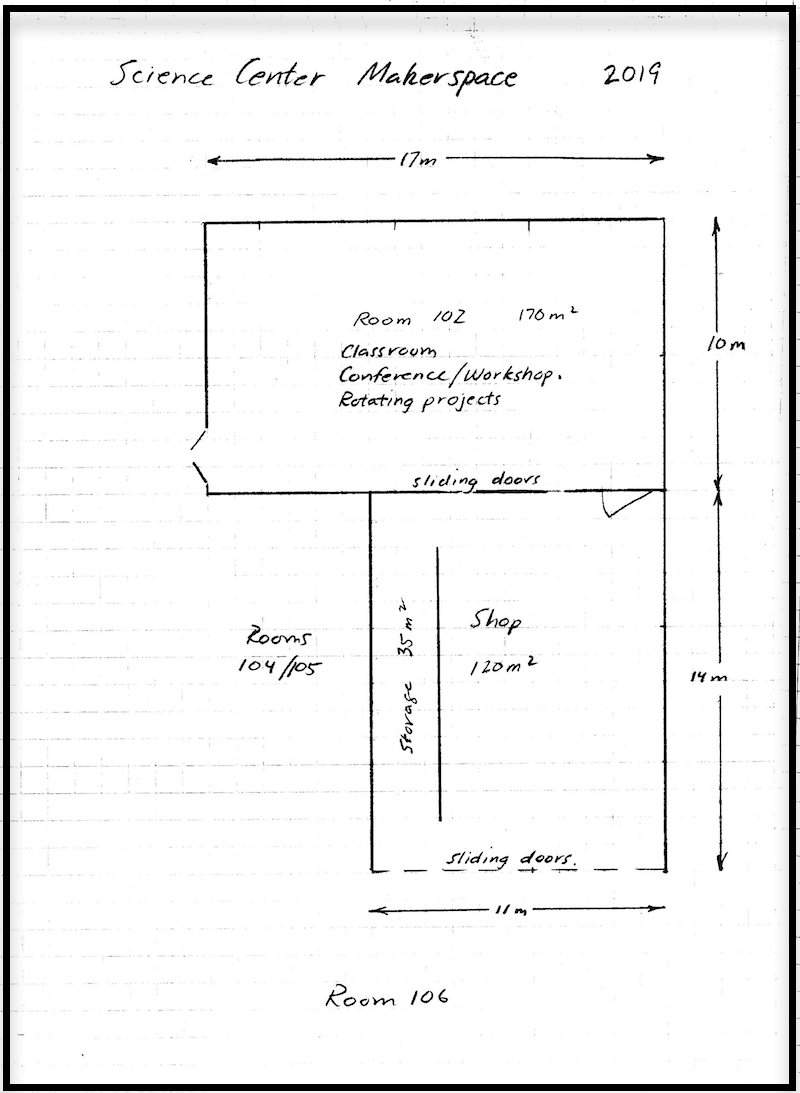 Science Center Makerspace 2019
17m
Room 102 170m²
10m
Classroom
Conference/Workshop.
Rotating projects
sliding doors
Rooms
104/105
Storage 35m²
Shop
120m²
14m
sliding doors.
11m
Room 106